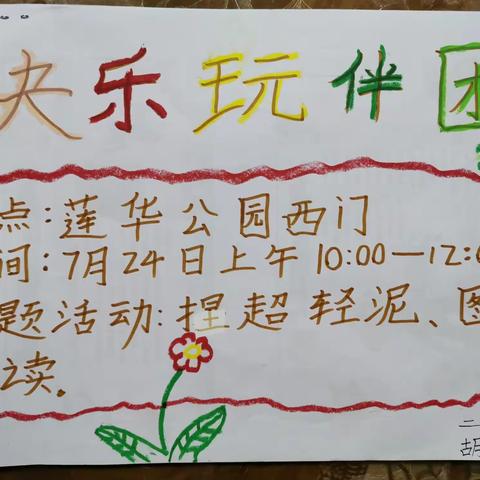 快乐玩伴团
点:莲华公园西门
间:7月24日上午10:00—12:0
题活动:捏超轻泥、图
之读。
二
胡